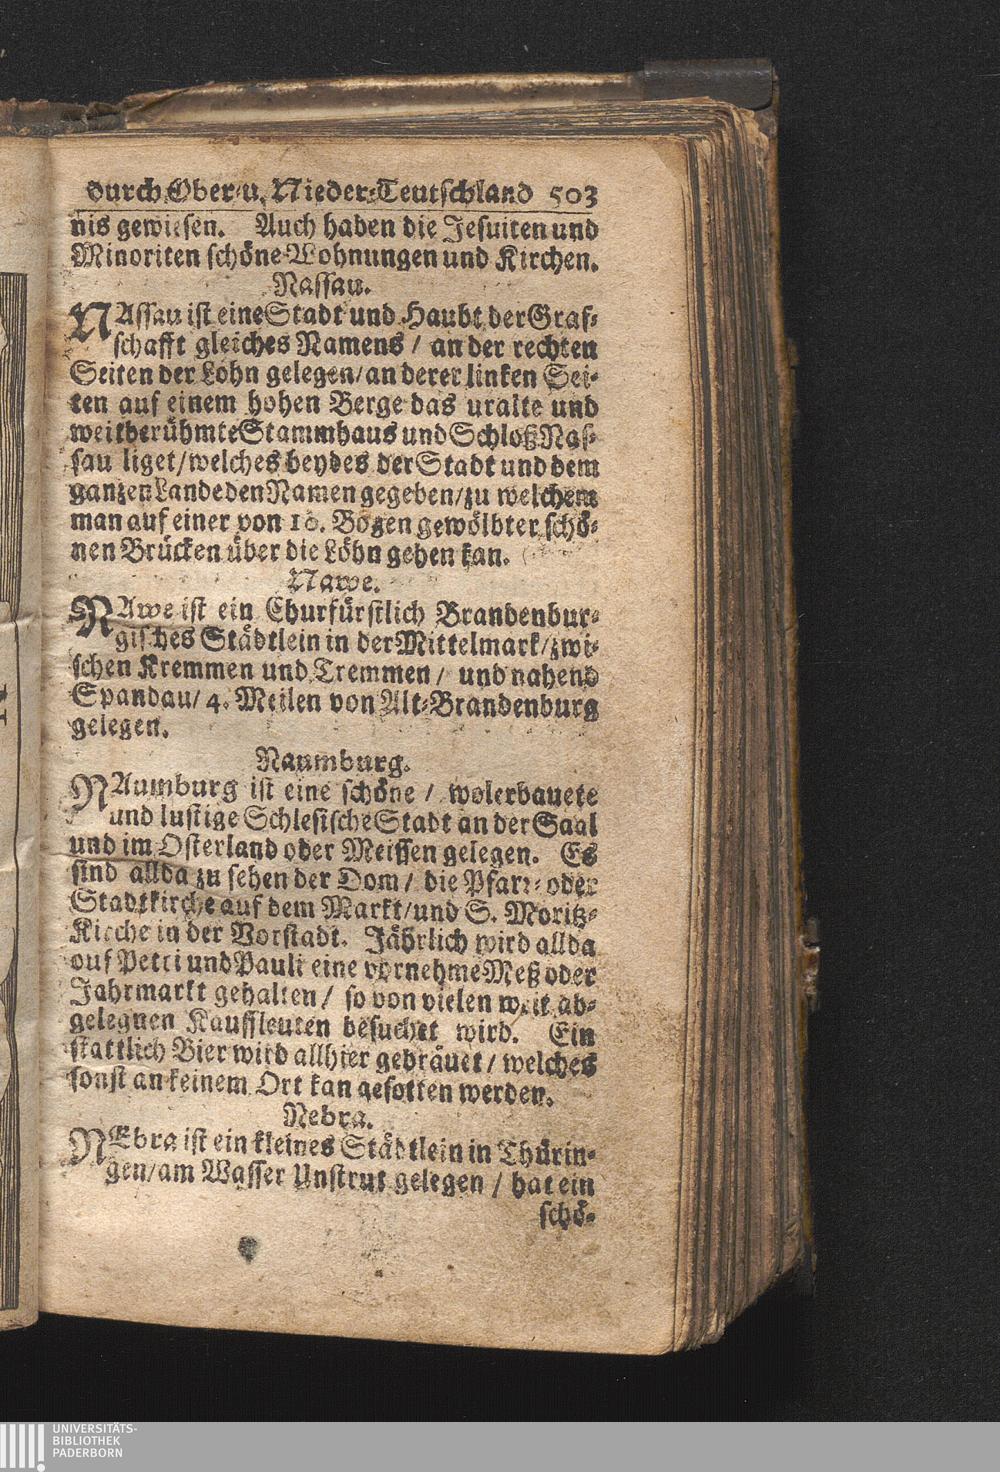 durch Ober-u. Nieder-Teutschland 503
nis gewiesen. Auch haben die Jesuiten und
Minoriten schöne Wohnungen und Kirchen.
Nassau.
NAssau ist eine Stadt und Haubt der Graf-
schafft gleiches Namens / an der rechten
Seiten der Löhn gelegen / an derer linken Sei-
ten auf einem hohen Berge das uralte und
weitberühmte Stammhaus und Schloß Nas-
sau liget / welches beydes der Stadt und dem
ganzen Lande den Namen gegeben / zu welchem
man auf einer von 10. Bogen gewölbter schö-
nen Brücken über die Löhn gehen kan.
Nawe.
NAwe ist ein Churfürstlich Brandenbur-
gisches Städtlein in der Mittelmark / zwi-
schen Kremmen und Tremmen / und nahend
Spandau / 4. Meilen von Alt-Brandenburg
gelegen.
Naumburg.
NAumburg ist eine schöne / wolerbauete
und lustige Schlesische Stadt an der Saal
und im Osterland oder Meissen gelegen. Es
sind allda zu sehen der Dom / die Pfarr- oder
Stadtkirche auf dem Markt / und S. Moritz-
Kirche in der Vorstadt. Jährlich wird allda
auf Petri und Pauli eine vornehme Meß oder
Jahrmarkt gehalten / so von vielen weit ab-
gelegnen Kauffleuten besuchet wird. Ein
stattlich Bier wird allhier gebräuet / welches
sonst an keinem Ort kan gesotten werden.
Nebra.
NEbra ist ein kleines Städtlein in Thürin-
gen / am Wasser Unstrut gelegen / hat ein
schö-
UNIVERSITÄTS-
BIBLIOTHEK
PADERBORN